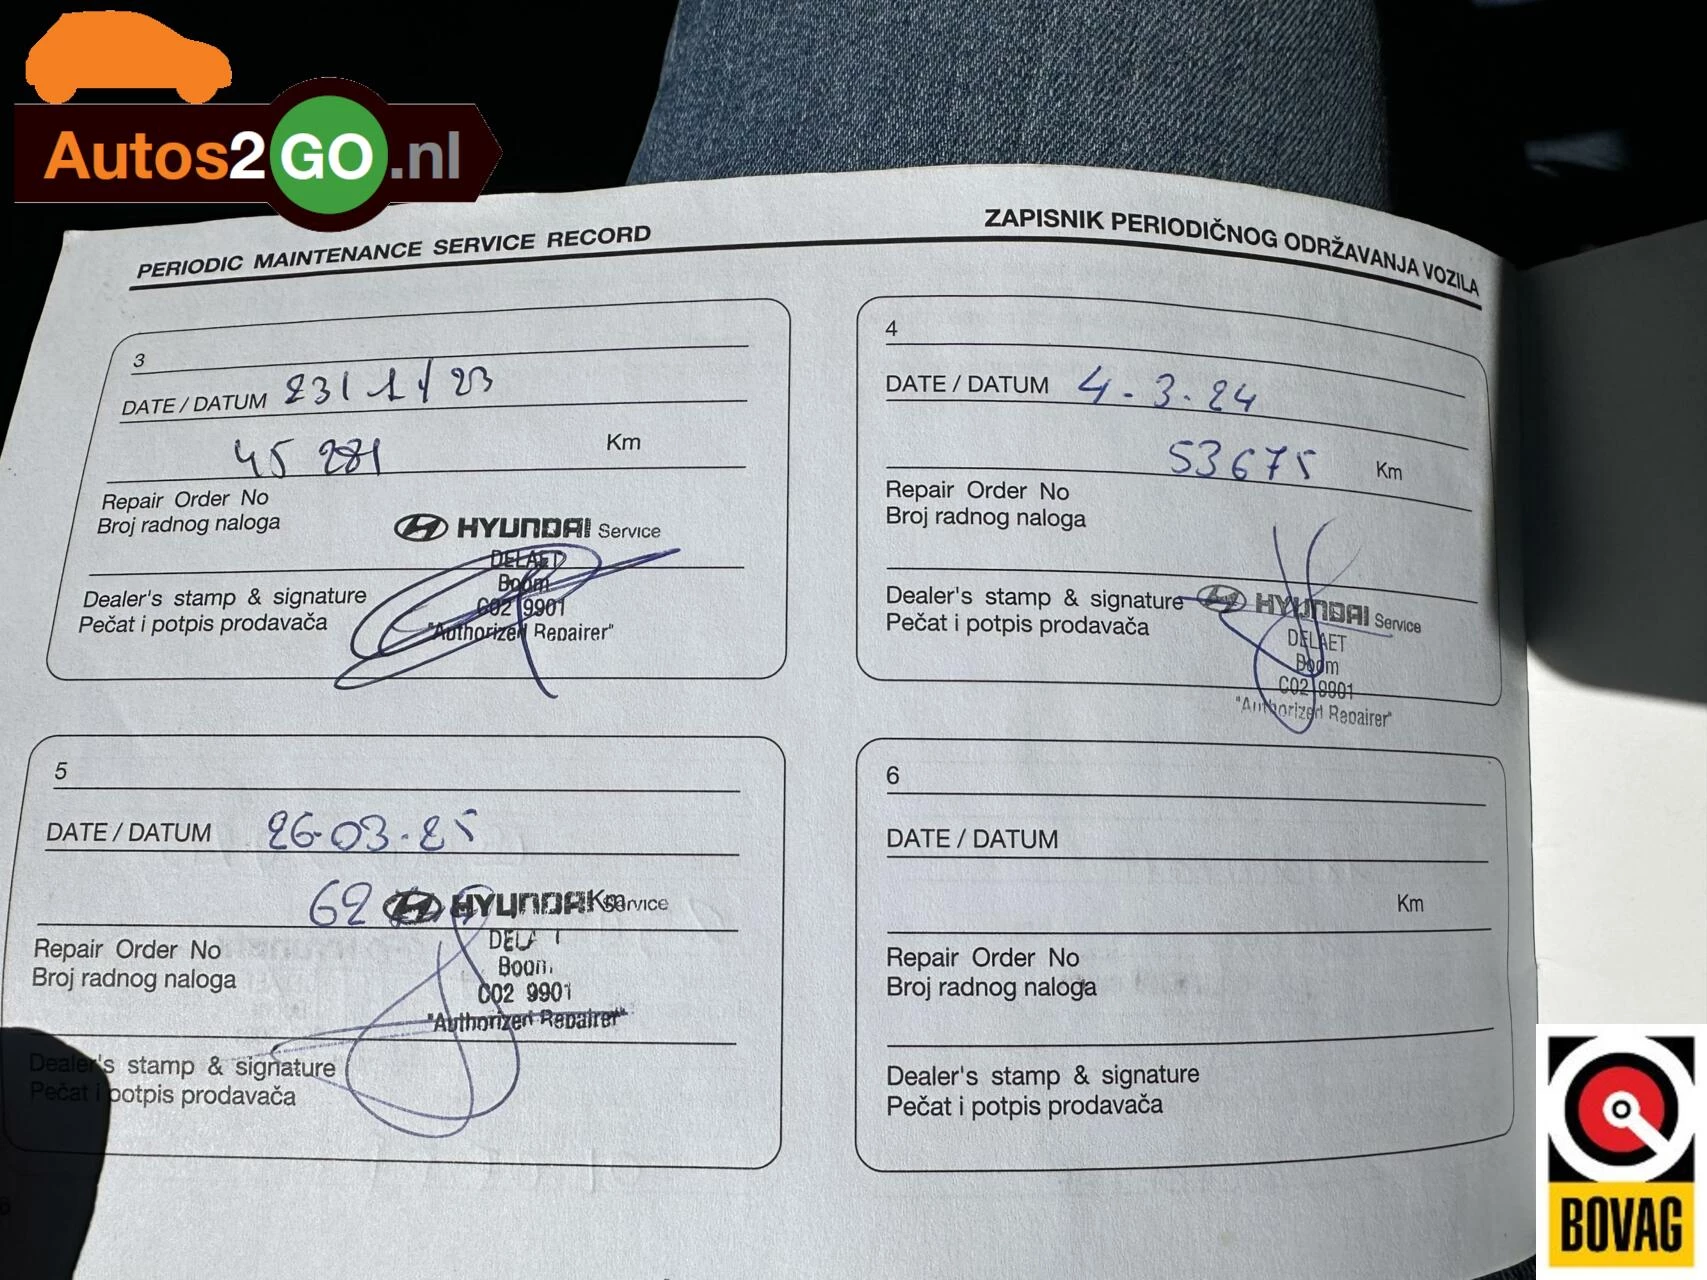 Autos2GO.nl
PERIODIC MAINTENANCE SERVICE RECORD
ZAPISNIK PERIODIČNOG ODRŽAVANJA VOZILA
3
DATE / DATUM 23/1/23
45 281 Km
Repair Order No
Broj radnog naloga
HYUNDAI Service
DELAET
Boom
C02 9901
"Authorized Repairer"
Dealer's stamp & signature
Pečat i potpis prodavača
4
DATE / DATUM 4-3-24
53675 Km
Repair Order No
Broj radnog naloga
Dealer's stamp & signature
Pečat i potpis prodavača
HYUNDAI Service
DELAET
Boom
C02 9901
"Authorized Repairer"
5
DATE / DATUM 26-03-25
62 Km
HYUNDAI Service
Repair Order No
Broj radnog naloga
Boom
C02 9901
"Authorized Repairer"
Dealer's stamp & signature
Pečat i potpis prodavača
6
DATE / DATUM
Km
Repair Order No
Broj radnog naloga
Dealer's stamp & signature
Pečat i potpis prodavača
BOVAG